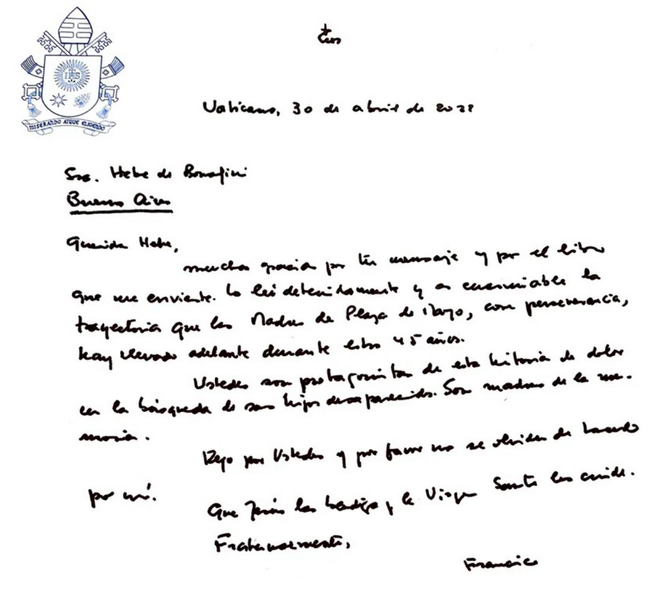 IHS
MISERANDO ATQUE ELIGENDO
Vaticano, 30 de abril de 2022
Sra. Hebe de Bonafini
Buenos Aires
Querida Hebe,
muchas gracias por tu mensaje y por el libro
que me enviaste. Lo leí detenidamente y es encomiable la
trayectoria que las Madres de Plaza de Mayo, con perseverancia,
han llevado adelante durante estos 45 años.
Ustedes son protagonistas de esta historia de dolor
en la búsqueda de sus hijos desaparecidos. Son madres de la me-
moria.
Rezo por Ustedes y por favor no se olviden de hacerlo
por mí.
Que Jesús las bendiga y la Virgen Santa las cuide.
Fraternalmente,
Francisco